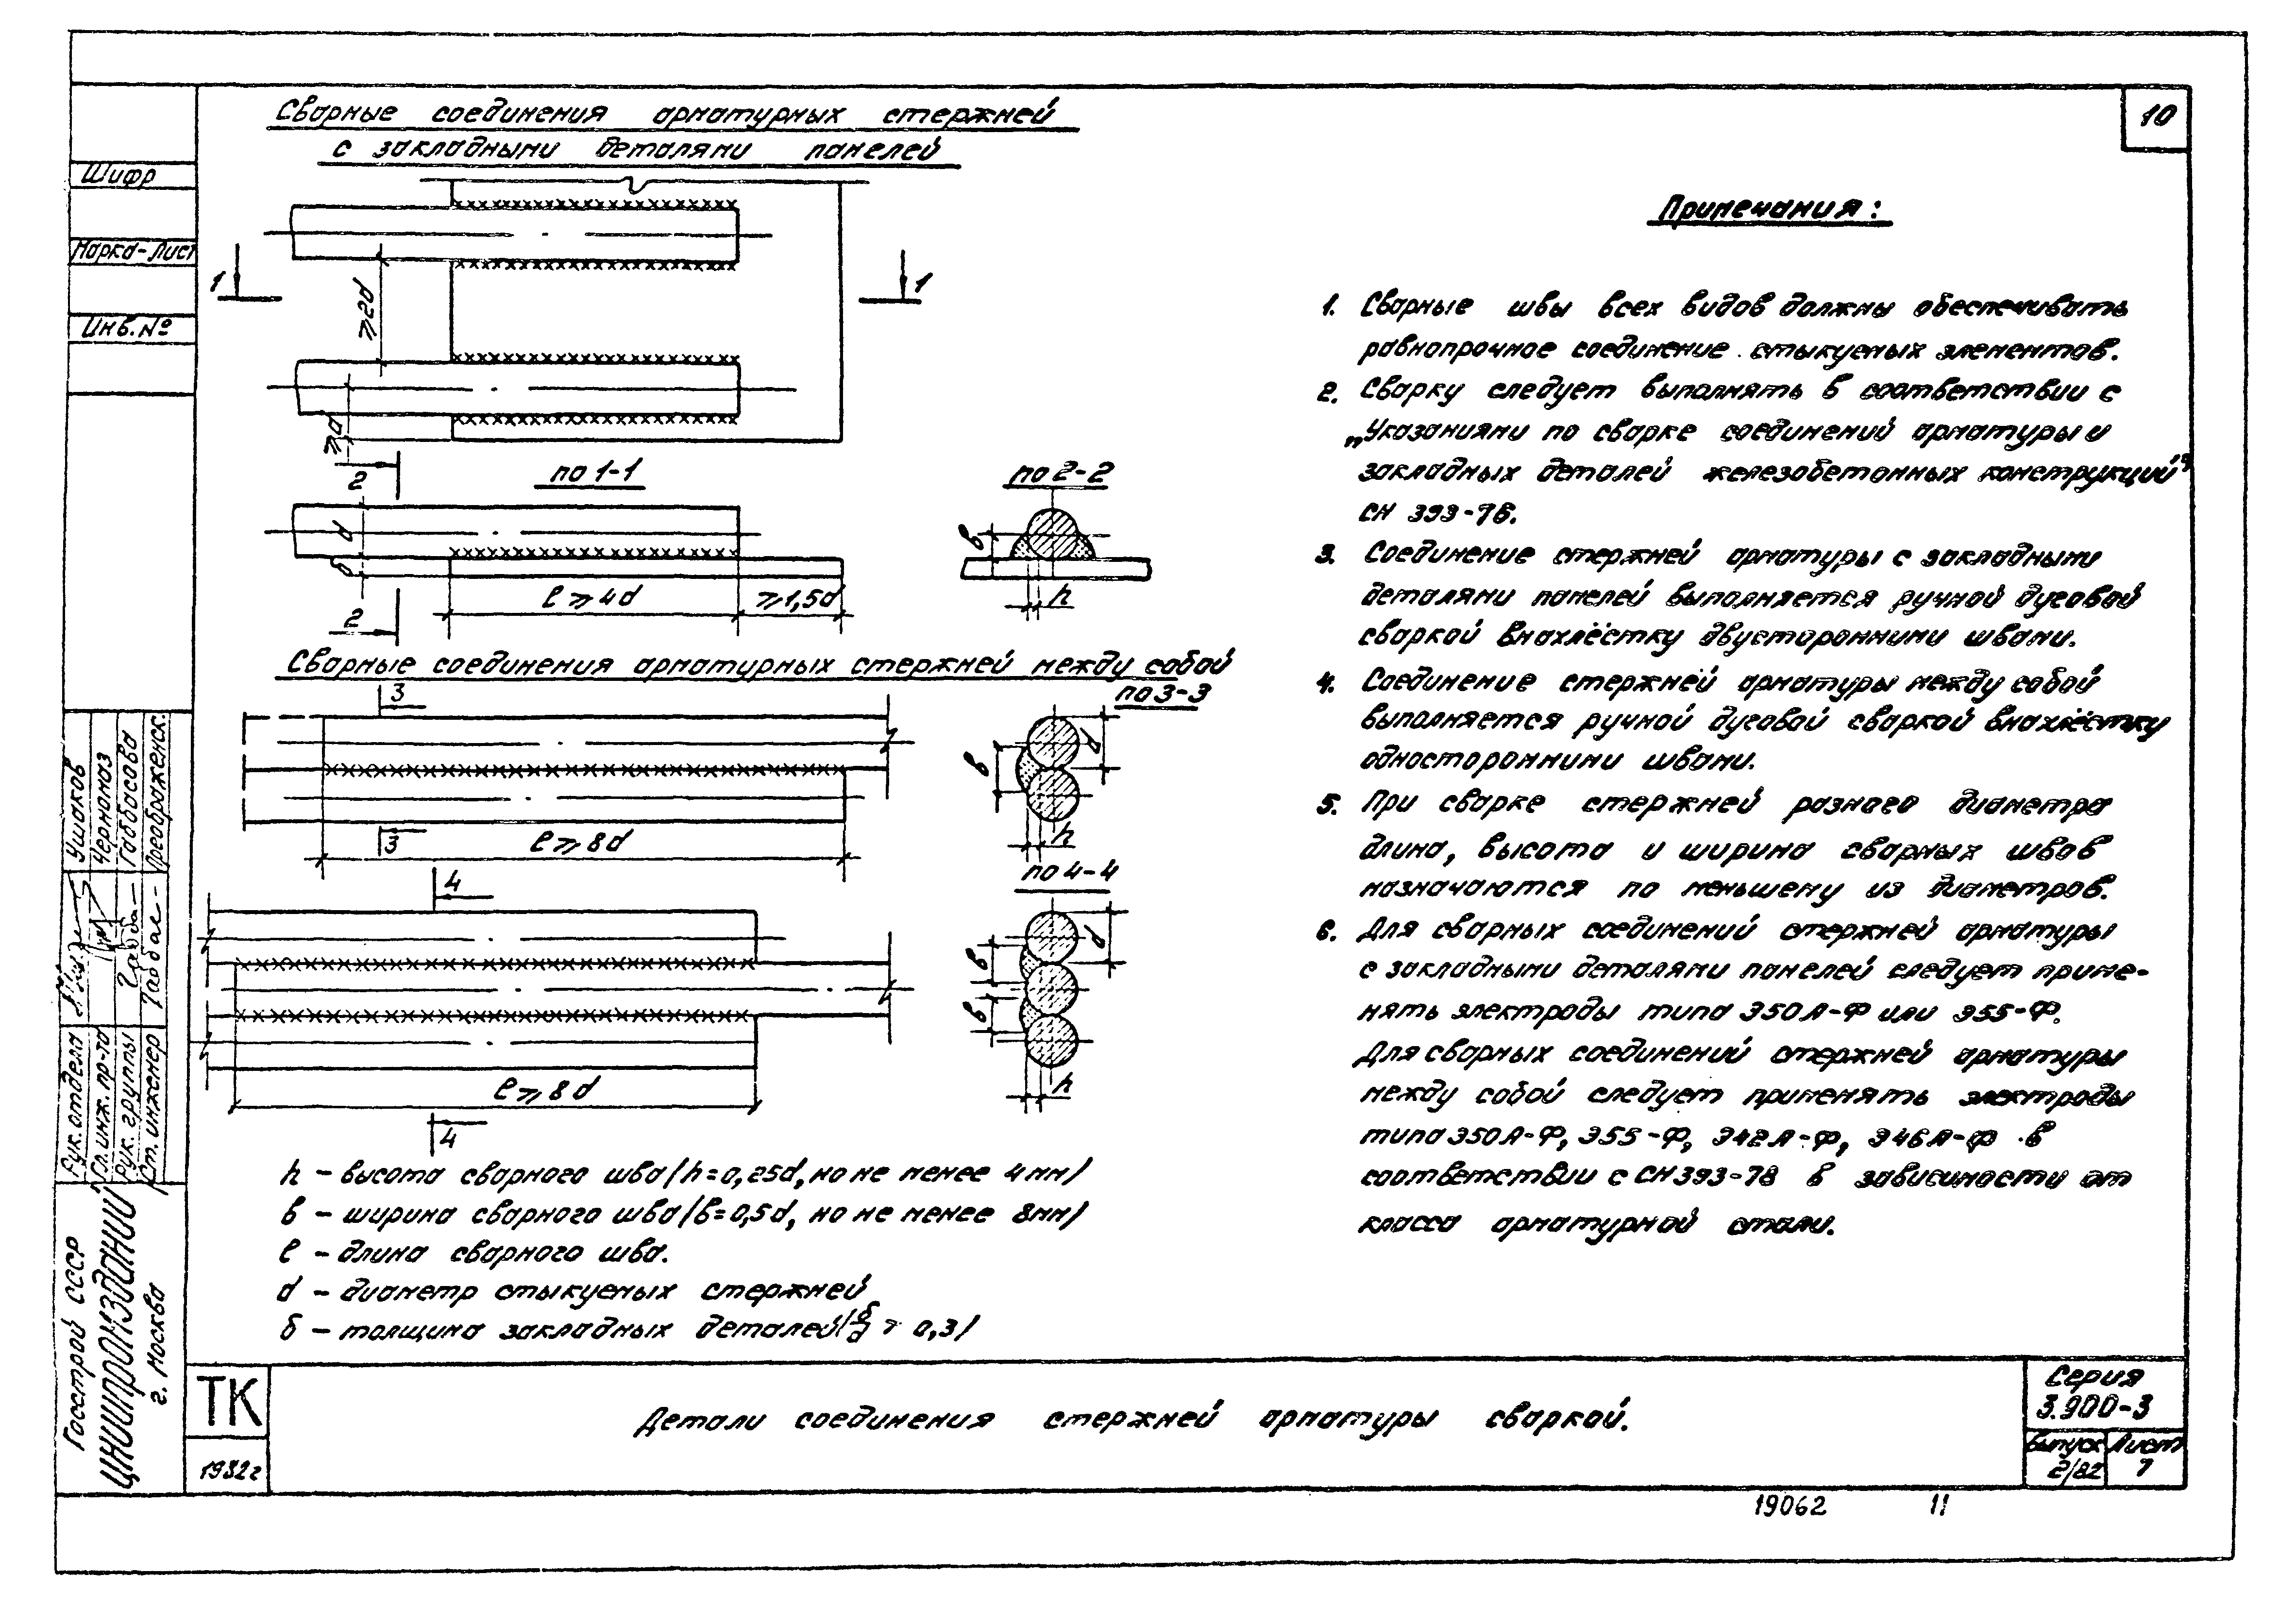 10
Сварные соединения арматурных стержней
с закладными деталями панелей
Шифр
Марка-Лист
Инв.№
1
1
≥2d
≥d
2
по 1-1
по 2-2
d
δ
в
h
ℓ ≥ 4d
≥1,5d
2
Сварные соединения арматурных стержней между собой
3
по 3-3
в
d
h
3
ℓ ≥ 8d
4
по 4-4
в
в
d
h
ℓ ≥ 8d
4
h – высота сварного шва (h=0,25d, но не менее 4мм)
в – ширина сварного шва (в=0,5d, но не менее 8мм)
ℓ – длина сварного шва.
d – диаметр стыкуемых стержней
δ – толщина закладных деталей (δ/d ≥ 0,3)
Примечания:
1. Сварные швы всех видов должны обеспечивать
равнопрочное соединение стыкуемых элементов.
2. Сварку следует выполнять в соответствии с
„Указаниями по сварке соединений арматуры и
закладных деталей железобетонных конструкций"
СН 393-78.
3. Соединение стержней арматуры с закладными
деталями панелей выполняется ручной дуговой
сваркой внахлёстку двусторонними швами.
4. Соединение стержней арматуры между собой
выполняется ручной дуговой сваркой внахлёстку
односторонними швами.
5. При сварке стержней разного диаметра
длина, высота и ширина сварных швов
назначаются по меньшему из диаметров.
6. Для сварных соединений стержней арматуры
с закладными деталями панелей следует приме-
нять электроды типа Э50А-Ф или Э55-Ф.
Для сварных соединений стержней арматуры
между собой следует применять электроды
типа Э50А-Ф, Э55-Ф, Э42А-Ф, Э46А-Ф в
соответствии с СН 393-78 в зависимости от
класса арматурной стали.
Рук. отдела Ушаков
Гл. инж. пр-та Черномаз
Рук. группы Габбасова
Ст. инженер Преображенск.
Госстрой СССР
ЦНИИПРОМЗДАНИЙ
г. Москва
ТК
1982г
Детали соединения стержней арматуры сваркой.
Серия
3.900-3
Выпуск Лист
2/82 7
19062 11